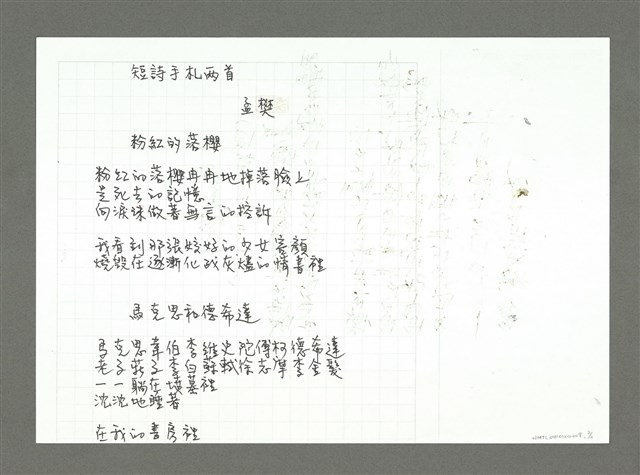 短詩手札兩首
孟樊
粉紅的落櫻
粉紅的落櫻冉冉地掉落臉上
是死去的記憶
向淚珠做著無言的控訴
我看到那張姣好的少女容顏
燒毀在逐漸化成灰燼的情書裡
馬克思和德希達
馬克思韋伯李維史陀傅柯德希達
老子莊子李白蘇軾徐志摩李金髮
一一躺在墳墓裡
沈沈地睡著
在我的書房裡